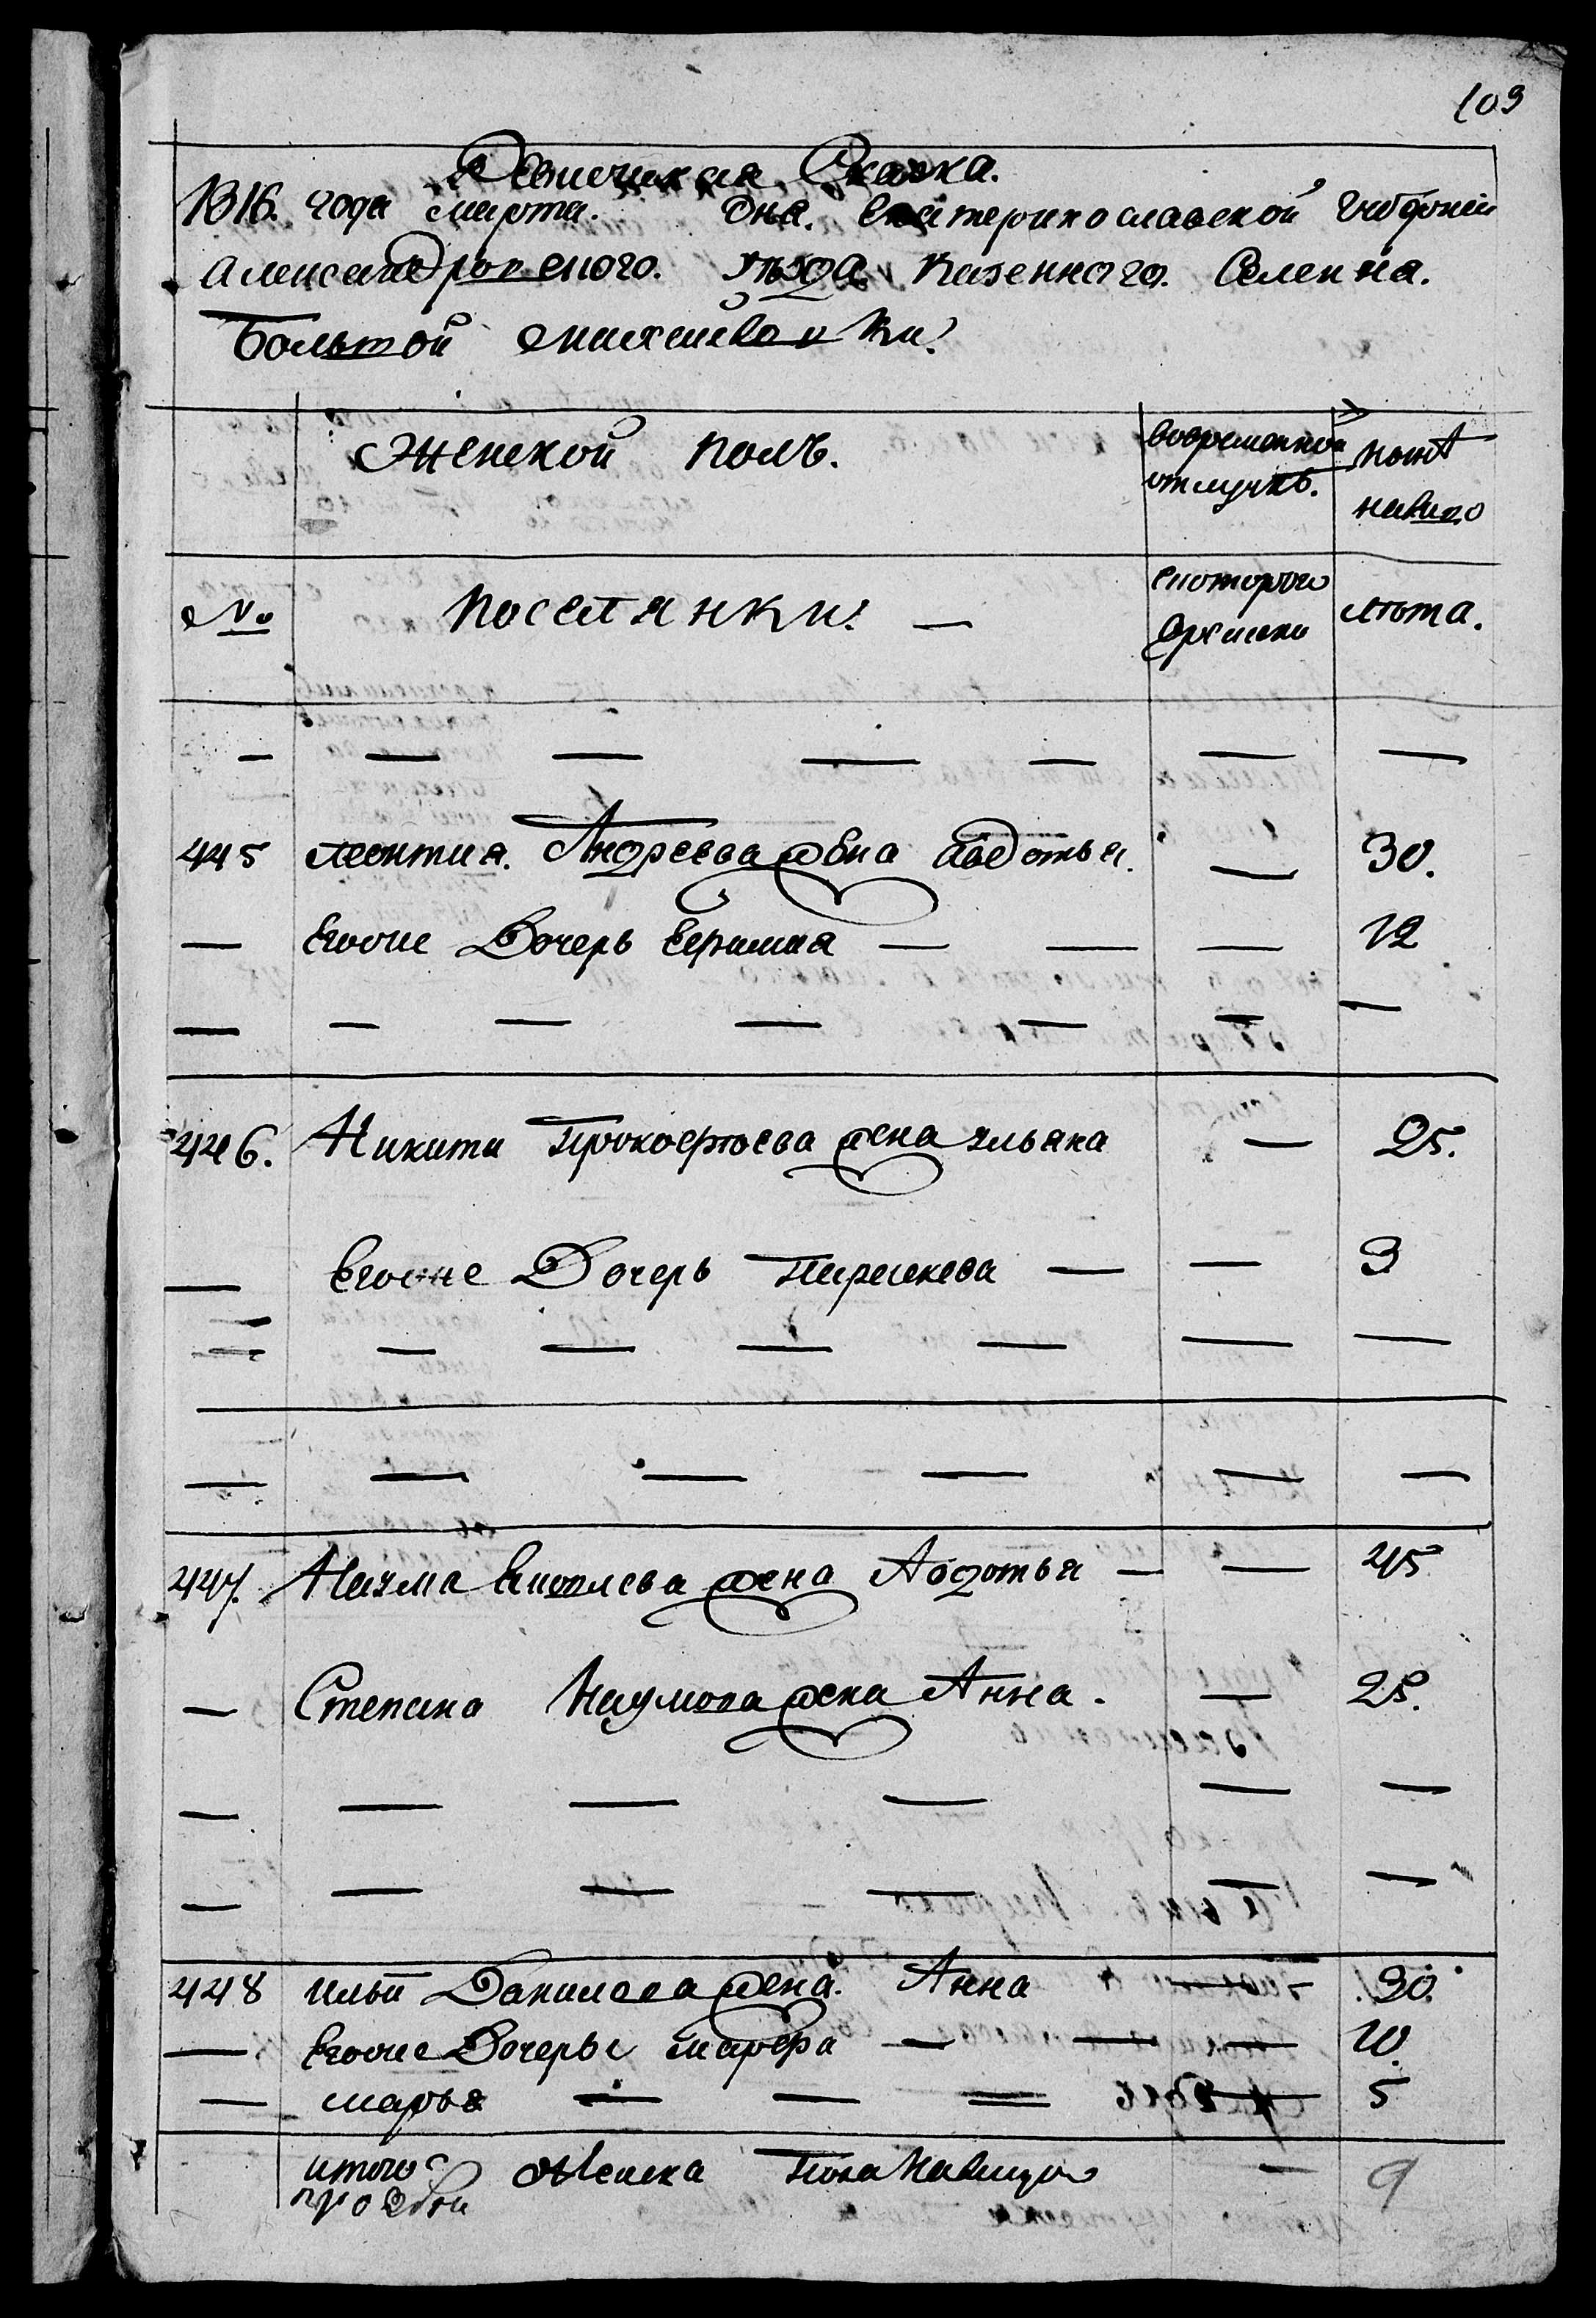 103
Ревишская Скаска.
1816. года марта. Дня. Екатеринославской Губерніи
Александровского. уѣзда. Казенного. Селения.
Большой михайловки.
Женской полъ.
вовременной отлучкѣ.
ныне налицо
№ поселянки. —
скоторого времени
лѣта.
— — — — — — —
445 леонтия. Андреева жена Авдотья. — 30.
— Егоже Дочерь Ефимия — — — 12
— — — — — — —
446. Никити Прокофьева жена ульяна — 25.
— Егоже Дочерь параскева — — 3
— — — — — — —
— — — — — —
447. Наума жена Авдотья — — 45
— Степана Наумова жена Анна. — 25.
— — — — — —
— — — — — —
448 ильи Данилова жена. Анна — 30.
— Егоже Дочерьи марфа — — — 10.
— марья — — — — 5
итого женска пола налицо — 9